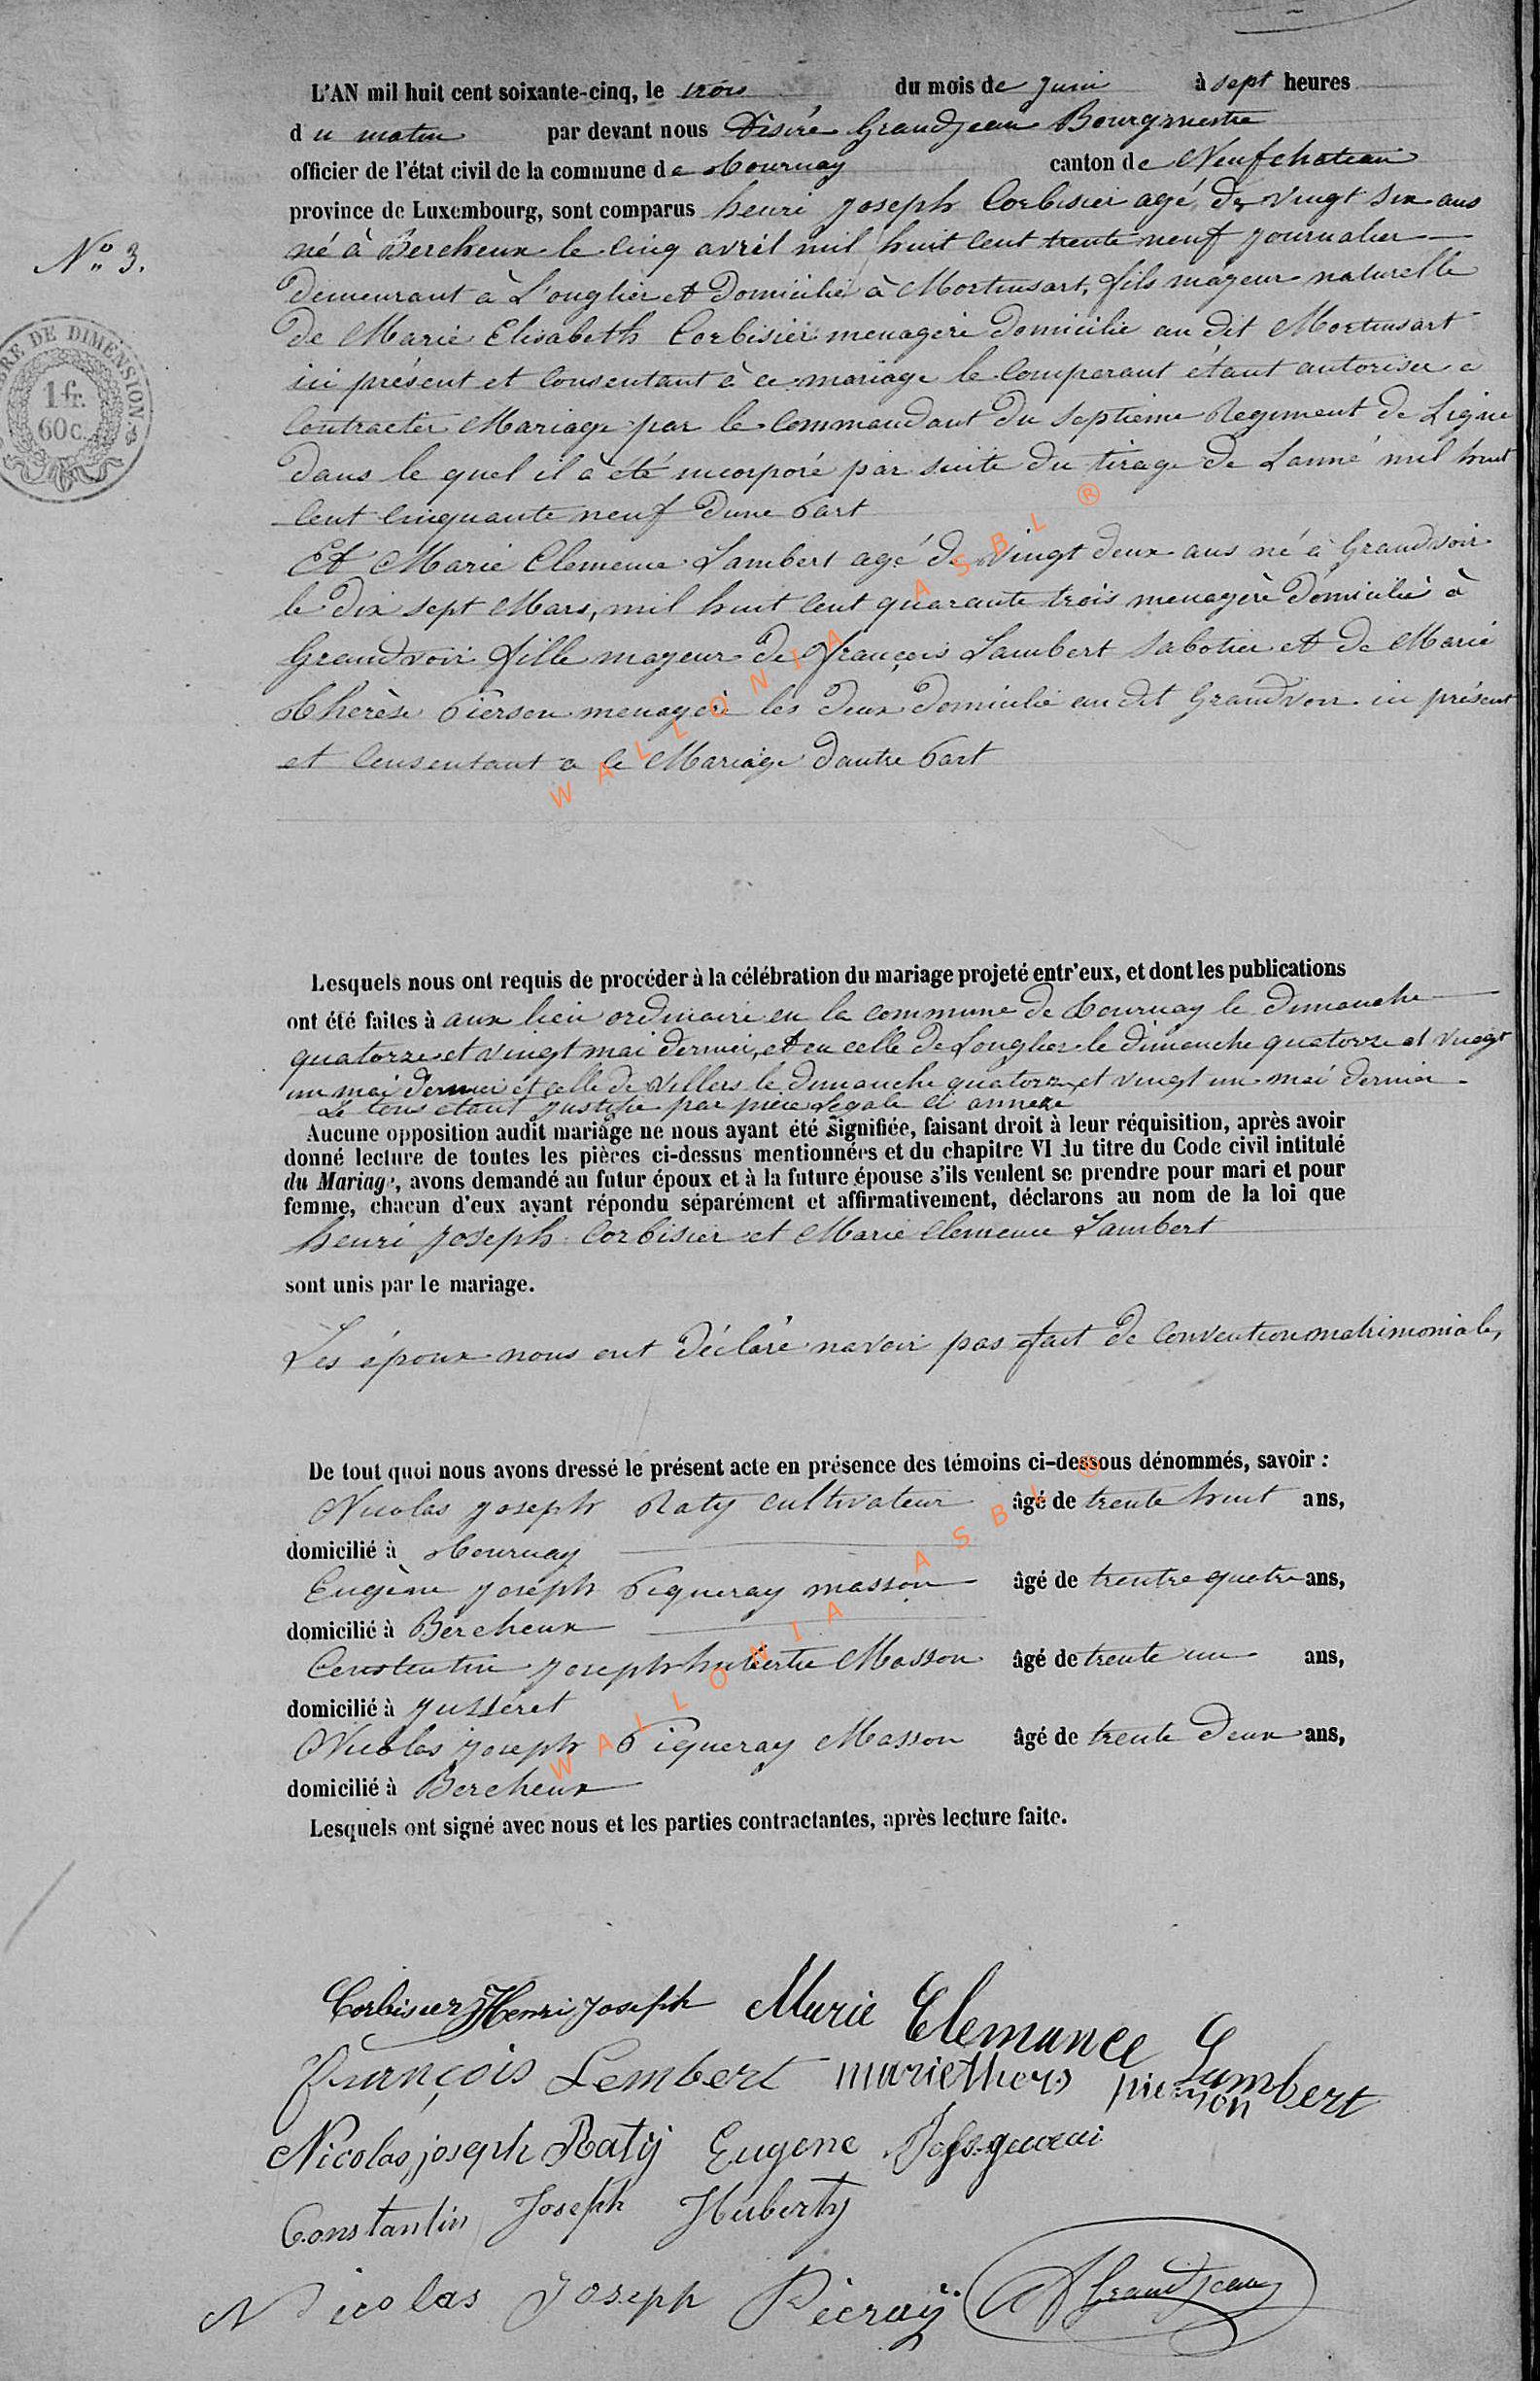 L'AN mil huit cent soixante-cinq, le trois du mois de juin à sept heures
du matin par devant nous Désiré Grandjean Bourgmestre
officier de l'état civil de la commune de Tournay canton de Neufchateau
province de Luxembourg, sont comparus henri joseph Corbisier agé de vingt six ans
né à Bercheux le cinq avril mil huit cent trente neuf journalier
N° 3.
demeurant à L'ouglier et domicilié à Mortinsart, fils majeur naturelle
de Marie Elisabeth Corbisier menagère domicilié au dit Mortinsart
TIMBRE DE DIMENSION
1 fr.
60 c.
ici présent et consentant à ce mariage le Comparant étant autoriser a
Contracter Mariage par le Commandant du septième Regiment de Ligne
dans le quel il à été incorporé par suite du tirage de Lanné mil huit
cent cinquante neuf dune Part
Et Marie Clemence Lambert agé de vingt deux ans né à Grandvoir
le dix sept Mars, mil huit cent quarante trois menagère domicilié à
Grandvoir fille mayeur de françois Lambert Sabotier et de Marie
Thérèse Pierson menagère les deux domicilié au dit Grandvoir ici présent
et Consentant a ce Mariage dautre Part
WALLONIA ASBL ®
Lesquels nous ont requis de procéder à la célébration du mariage projeté entr'eux, et dont les publications
ont été faites à aux lieu ordinaire en la commune de Tournay le dimanche
quatorze et vingt mai dernier, et en celle de Longlier le dimanche quatorze et vingt
un mai dernier et celle de Villers le dimanche quatorze et vingt un mai dernier
Le tous étant justifié par pièce Légale ci annexe
Aucune opposition audit mariage ne nous ayant été signifiée, faisant droit à leur réquisition, après avoir
donné lecture de toutes les pièces ci-dessus mentionnées et du chapitre VI du titre du Code civil intitulé
du Mariage, avons demandé au futur époux et à la future épouse s'ils veulent se prendre pour mari et pour
femme, chacun d'eux ayant répondu séparément et affirmativement, déclarons au nom de la loi que
henri joseph Corbisier et Marie Clemence Lambert
sont unis par le mariage.
Les époux nous ont déclaré navoir pas fait de Convention matrimoniale,
De tout quoi nous avons dressé le présent acte en présence des témoins ci-dessous dénommés, savoir :
Nicolas joseph Raty cultivateur âgé de trente huit ans,
domicilié à Tournay
Eugène joseph Piqueray masson âgé de trentre quatre ans,
domicilié à Bercheux
Constantin joseph huberty Masson âgé de trente un ans,
domicilié à jusseret
Nicolas joseph Piqueray Masson âgé de trente deux ans,
domicilié à Bercheux
WALLONIA ASBL ®
Lesquels ont signé avec nous et les parties contractantes, après lecture faite.
Corbisier Henri joseph Marie Clemance Lambert
François Lembert mariethers pierson
Nicolas, joseph Raty Eugene
Constantin Joseph Huberty
Nicolas Joseph Picray Grandjean